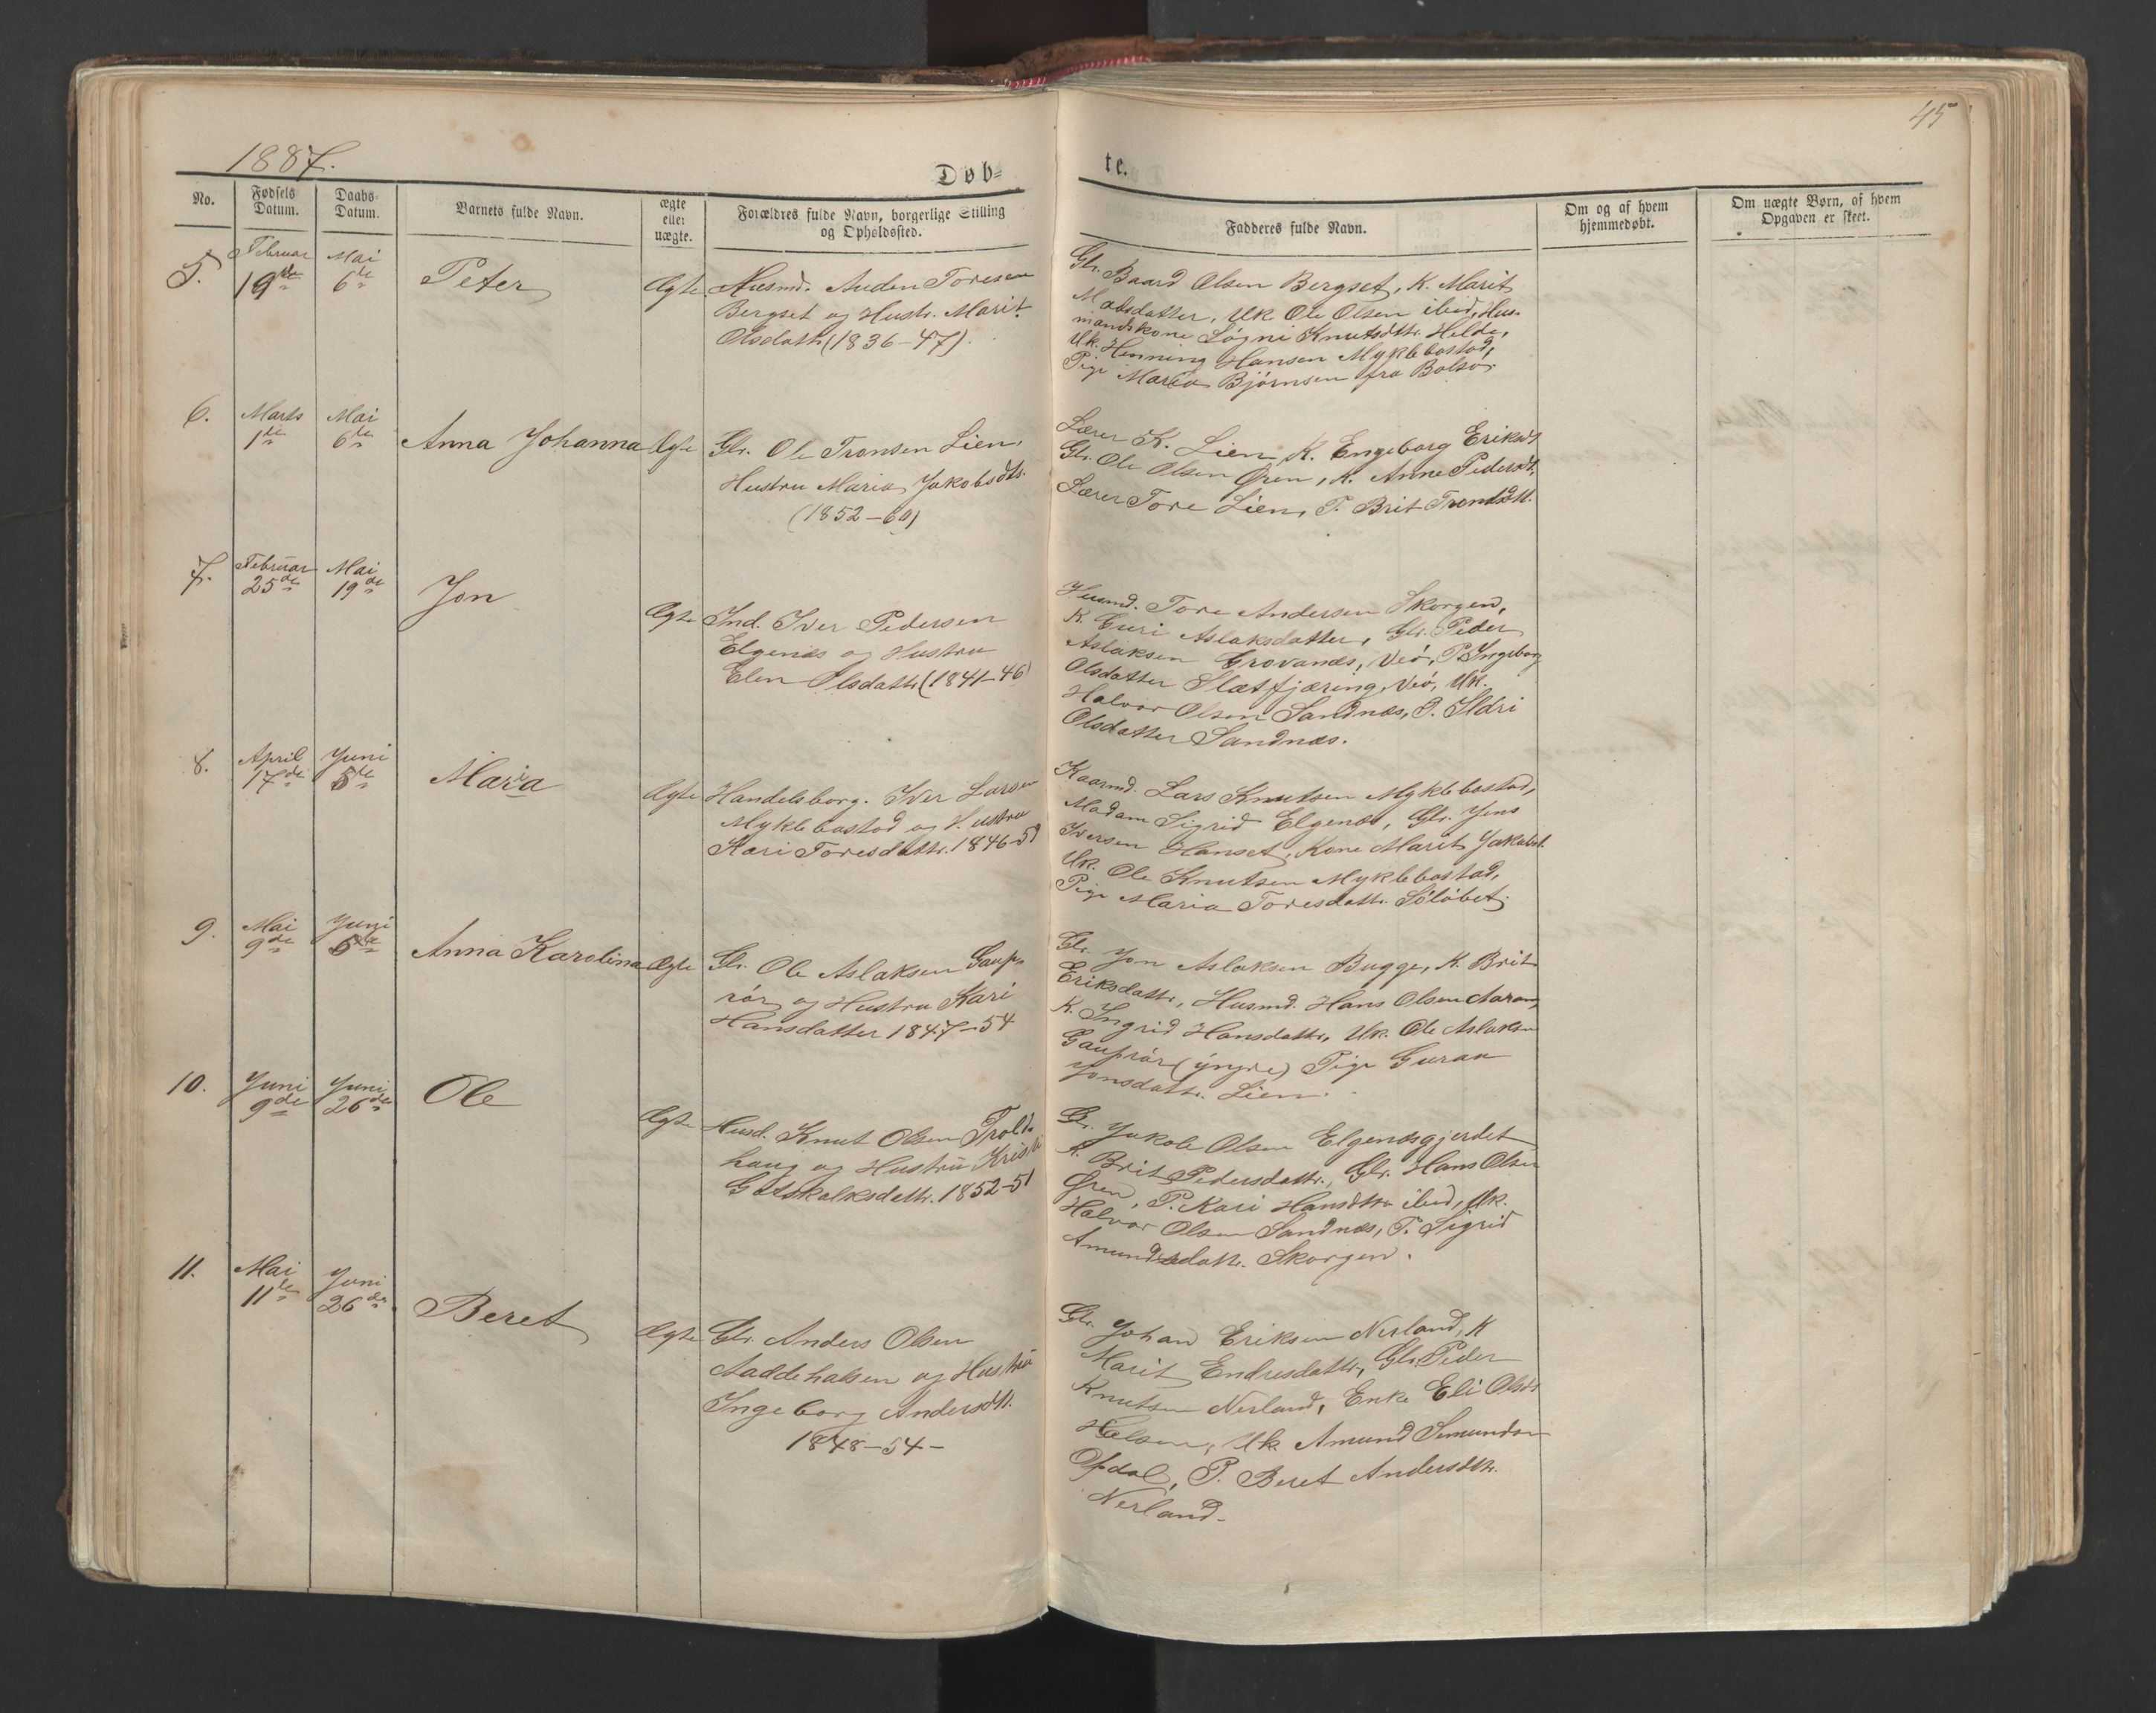 45
1887.
Døb-
te.
No.
Fødsels Datum.
Daabs-Datum.
Barnets fulde Navn.
ægte eller uægte.
Forældres fulde Navn, borgerlige Stilling og Opholdssted.
Fadderes fulde Navn.
Om og af hvem hjemmedøbt.
Om uægte Børn, af hvem Opgaven er skeet.
5.
Februar 19de
Mai 6de
Peter
Ægte
Husmd. Anden Toresen
Bergset og Hustr. Marit
Olsdatt. (1836-47).
Gbr. Baard Olsen Bergset, K. Marit
datter, Uk Ole Olsen ibid, Hus-
mandskone Søgni Knutsdtr. Helde,
Uk. Henning Hansen Myklebostad,
Pige Maria Bjørnsen fra Bolsø.
6.
Marts 1de
Mai 6de
Anna Johanna
Ægte
Gbr. Ole Tronsen Lien,
Hustru Maria Jakobsdtr.
(1852-60)
Lærer K. Lien, K. Engeborg Eriksdt
Gbr. Ole Olsen Øren, K. Anne Pedersdt.
Lærer Tore Lien, P. Brit Trondsdtt.
7.
Februar 25de
Mai 19de
Jon
Ægte
Ind. Iver Pedersen
Elgenæs og Hustru
Elen Olsdatt. (1841-46)
Husmd. Tore Andersen Skorgen,
K. Guri Aslaksdatter, Gbr. Peder
Aslaksen Grovanæs, Veø, P. Ingeborg
Olsdatter Sletfjæring, Veø, Uk.
Halvor Olsen Sandnæs, P. Ildri
Olsdatter Sandnæs.
8.
April 17de
Juni 5te
Maria
Ægte
Handelsborg. Iver Larsen
Myklebostad og Hustru
Kari Toresdattr. 1846-51
Kaarmd. Lars Knutsen Myklebostad,
Madam Sigrid Elgenæs, Gbr. Jens
Iversen Hanset, Kone Marit Jakobsd.
Uk. Ole Knutsen Myklebostad,
Pige Maria Toresdattr. Sølsbet.
9.
Mai 9de
Juni 5te
Anna Karolina
Ægte
Gbr. Ole Aslaksen Gaup-
rør og Hustru Kari
Hansdatter 1847-54
Gbr. Jon Aslaksen Bugge, K. Brit
Eriksdattr., Husmd. Hans Olsen Aarang,
K. Ingrid Hansdattr., Uk. Ole Aslaksen
Gauprør (yngre) Pige Guraa
Jonsdattr. Lien.
10.
Juni 9de
Juni 26de
Ole
Ægte
Husd. Knut Olsen Trold-
haug og Hustru Kristi
Gotskalksdattr. 1852-51
Gbr. Jakob Olsen Elgenæsgjerdet
K. Brit Pedersdattr., Gbr. Hans Olsen
Øren, P. Kari Hansdttr ibid, Uk.
Halvor Olsen Sandnæs, P. Sigrid
Amundsdattr. Skorgen.
11.
Mai 11te
Juni 26de
Beret
Ægte
Gbr. Anders Olsen
Naddehalsen og Hustru
Ingeborg Andersdtt.
1848-54-
Gbr. Johan Eriksen Nerland, K
Marit Endresdattr., Gbr. Peder
Knutsen Nerland, Enke Eli Olsdt
Halsen, Uk. Amund Semundsen
Opdal, P. Beret Andersdtr.
Nerland.